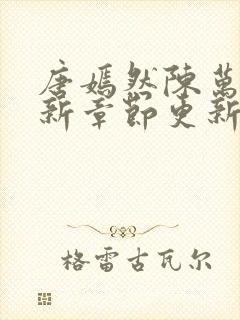 唐嫣然陳萬
新章節更新
格雷古瓦尔